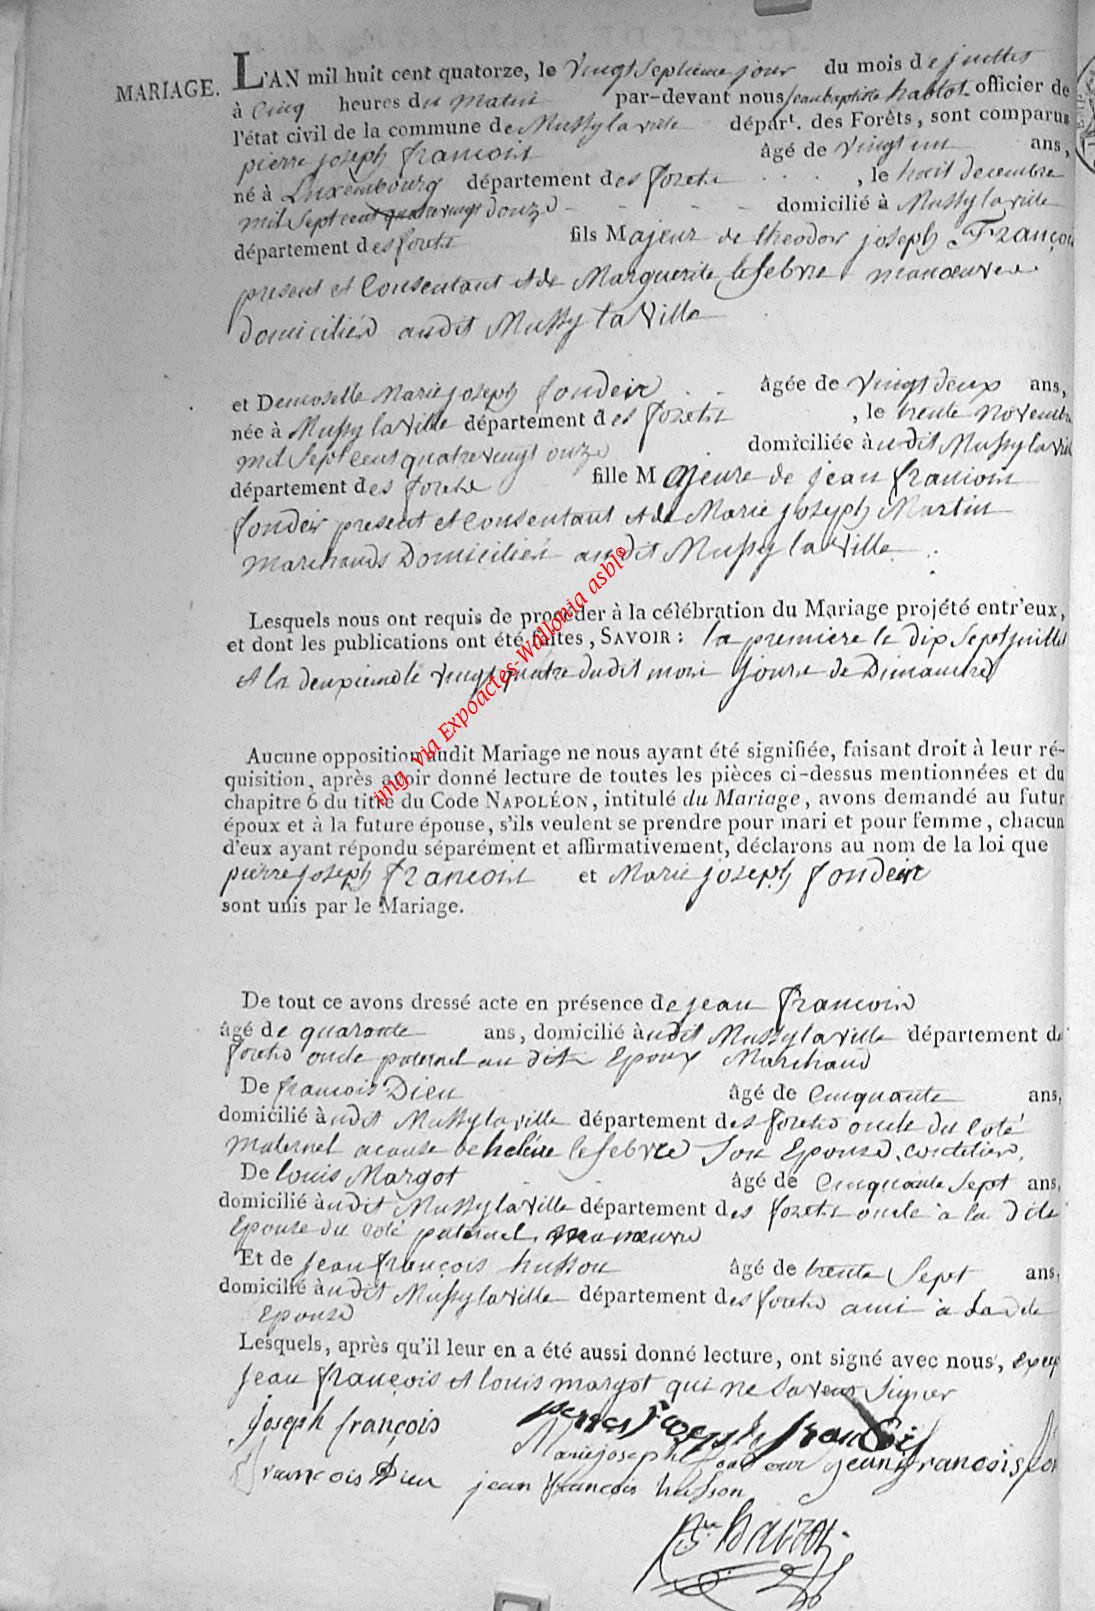 MARIAGE.
L'AN mil huit cent quatorze, le vingt septieme jour du mois de juillet
à cinq heures du matin par-devant nous jean baptiste hablot officier de
l'état civil de la commune de Mussy la ville départ. des Forêts, sont comparus
pierre joseph francoint âgé de vingt un ans,
né à Luxembourg département des foretz , le huit Decembre
mil sept cent quatrevingt douze domicilié à Mussy la ville
département des foretz fils Majeur de theodor joseph François
present et Consentant et de Marguerite lefebvre manœuvre
domiciliés audit Mussy la Ville
et Demoselle Marie joseph fondeir âgée de vingt deux ans,
née à Mussy la Ville département des foretz , le trente Novembre
mil Sept cent quatre vingt onze domiciliée audit Mussy la ville
département des foretz fille Majeure de jean francoint
fondeir present et Consentant et de Marie joseph Martin
marchands Domiciliés audit Mussy la Ville
Lesquels nous ont requis de procéder à la célébration du Mariage projété entr'eux,
et dont les publications ont été faites, SAVOIR : la premiere le dix Sept juillet
et la deuxieme le vingt quatre dudit mois jours de Dimanches
Aucune opposition audit Mariage ne nous ayant été signifiée, faisant droit à leur ré-
quisition, après avoir donné lecture de toutes les pièces ci-dessus mentionnées et du
chapitre 6 du titre du Code NAPOLÉON, intitulé du Mariage, avons demandé au futur
époux et à la future épouse, s'ils veulent se prendre pour mari et pour femme, chacun
d'eux ayant répondu séparément et affirmativement, déclarons au nom de la loi que
pierre joseph francoint et Marie joseph fondeir
sont unis par le Mariage.
De tout ce avons dressé acte en présence de jean francoin
âgé de quarante ans, domicilié audit Mussy la ville département des
foretz oncle paternel au dit Epoux Marchand
De francois Dieu âgé de Cinquante ans,
domicilié audit Mussy la ville département des foretz oncle du Coté
maternel acause de heleine lefebvre Son Epouse,
De louis Margot âgé de Cinquante Sept ans,
domicilié audit Mussy la ville département des foretz oncle a la dite
Epouse du coté paternel, manœuvre
Et de jean françois husson âgé de trente Sept ans,
domicilié audit Mussy la ville département des foretz ami a La dite
Epouse
Lesquels, après qu'il leur en a été aussi donné lecture, ont signé avec nous, excep
jean françois et louis margot qui ne savent Signer
joseph françois pierre joseph francois
Marie joseph jean francois
francois Dieu jean francois husson
img. via Expoactes-Wallonia asbl©